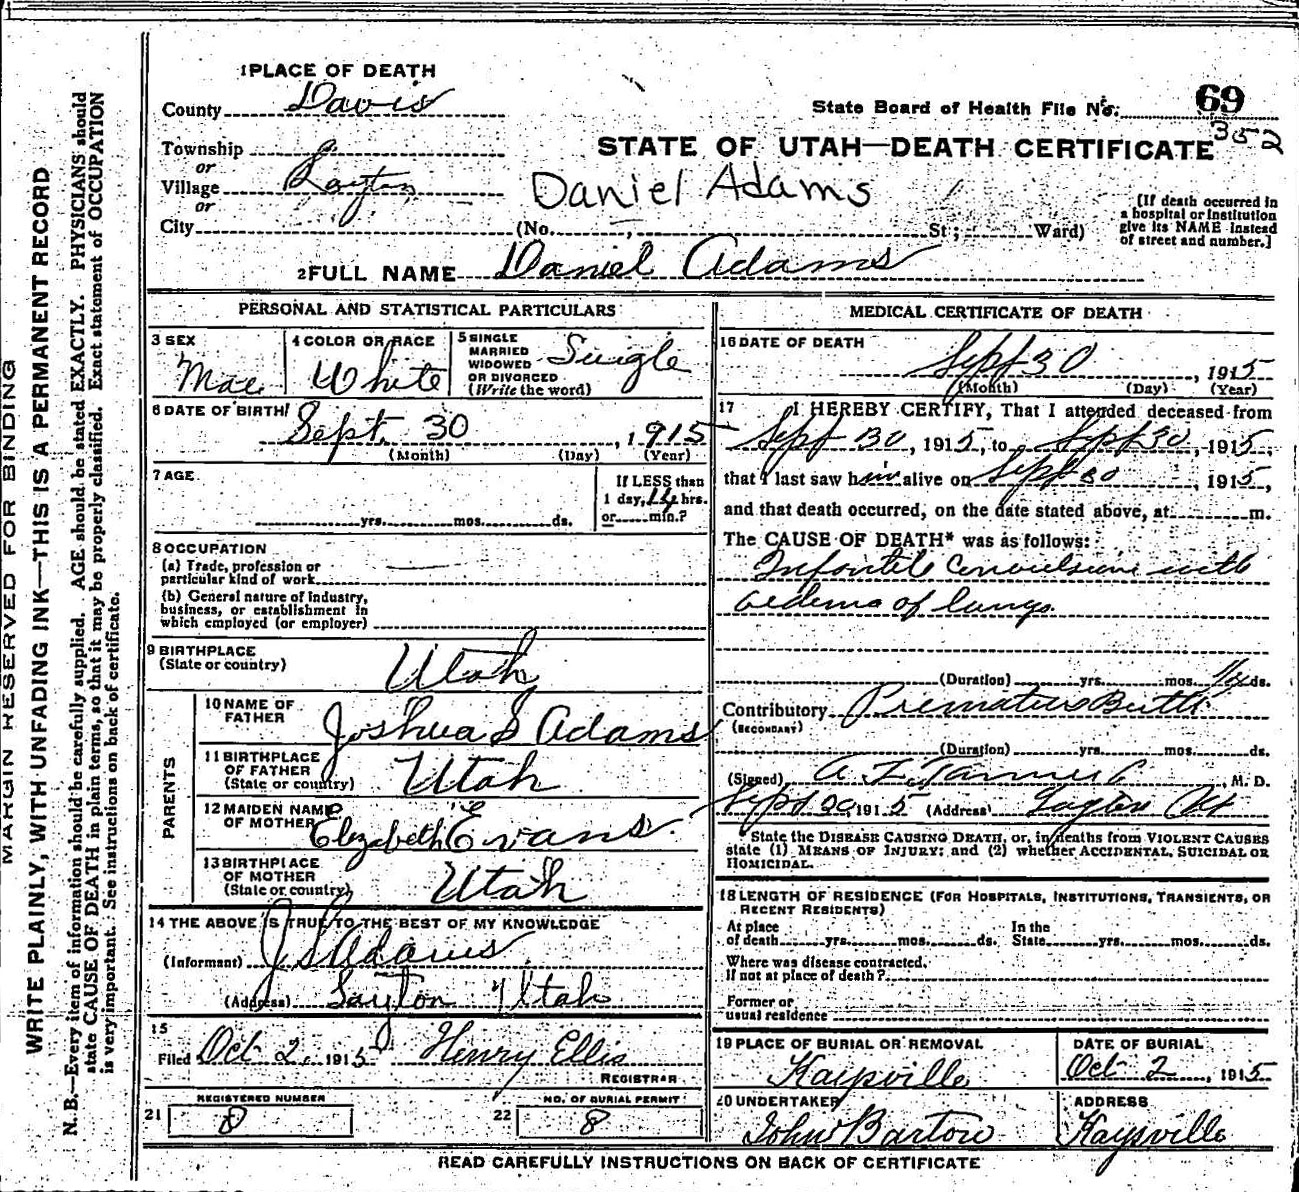 1 PLACE OF DEATH
County Davis
State Board of Health File No. 69
352
Township
or
Village Layton
or
City (No. St; Ward)
STATE OF UTAH—DEATH CERTIFICATE
Daniel Adams
[If death occurred in a hospital or institution give its NAME instead of street and number.]
2 FULL NAME Daniel Adams
PERSONAL AND STATISTICAL PARTICULARS
3 SEX
Mae
4 COLOR OR RACE
White
5 SINGLE
MARRIED
WIDOWED
OR DIVORCED
(Write the word)
Single
6 DATE OF BIRTH
Sept. 30, 1915
(Month) (Day) (Year)
7 AGE
yrs. mos. ds.
If LESS than
1 day, hrs.
or min.?
8 OCCUPATION
(a) Trade, profession or
particular kind of work
(b) General nature of industry,
business, or establishment in
which employed (or employer)
9 BIRTHPLACE
(State or country)
Utah
PARENTS
10 NAME OF
FATHER
Joshua S Adams
11 BIRTHPLACE
OF FATHER
(State or country)
Utah
12 MAIDEN NAME
OF MOTHER
Elizabeth Evans.
13 BIRTHPLACE
OF MOTHER
(State or country)
Utah
14 THE ABOVE IS TRUE TO THE BEST OF MY KNOWLEDGE
(Informant) J S Adams
(Address) Layton Utah
15
Filed Oct 2, 1915 Henry Ellis
REGISTRAR
21 REGISTERED NUMBER
8
22 NO. OF BURIAL PERMIT
8
MEDICAL CERTIFICATE OF DEATH
16 DATE OF DEATH
Sept 30, 1915
(Month) (Day) (Year)
17 I HEREBY CERTIFY, That I attended deceased from
Sept 30, 1915, to Sept 30, 1915,
that I last saw him alive on Sept 30, 1915,
and that death occurred, on the date stated above, at m.
The CAUSE OF DEATH* was as follows:
Infantile Convulsions with
oedema of lungs.
(Duration) yrs. mos. ds.
Contributory Premature Birth
(SECONDARY)
(Duration) yrs. mos. ds.
(Signed) , M. D.
Sept 30, 1915 (Address) Layton
* State the DISEASE CAUSING DEATH, or, in deaths from VIOLENT CAUSES
state (1) MEANS OF INJURY; and (2) whether ACCIDENTAL, SUICIDAL OR
HOMICIDAL.
18 LENGTH OF RESIDENCE (FOR HOSPITALS, INSTITUTIONS, TRANSIENTS, OR
RECENT RESIDENTS)
At place
of death yrs. mos. ds.
In the
State yrs. mos. ds.
Where was disease contracted,
if not at place of death?
Former or
usual residence
19 PLACE OF BURIAL OR REMOVAL
Kaysville
DATE OF BURIAL
Oct 2, 1915
20 UNDERTAKER
John Barton
ADDRESS
Kaysville
READ CAREFULLY INSTRUCTIONS ON BACK OF CERTIFICATE
MARGIN RESERVED FOR BINDING
WRITE PLAINLY, WITH UNFADING INK—THIS IS A PERMANENT RECORD
N. B.—Every item of information should be carefully supplied. AGE should be stated EXACTLY. PHYSICIANS should
state CAUSE OF DEATH in plain terms, so that it may be properly classified. Exact statement of OCCUPATION
is very important. See instructions on back of certificate.